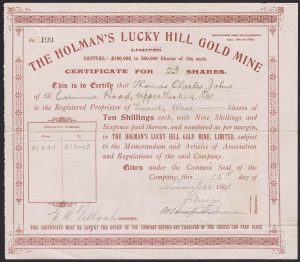 No. 199
THE HOLMAN'S LUCKY HILL GOLD MINE
LIMITED.
CAPITAL: £100,000 in 200,000 Shares of 10s. each
CERTIFICATE FOR 23 SHARES.
This is to Certify that Thomas Charles John
of 58 Road, Upper Tooting, SW
is the Registered Proprietor of Twenty three Shares of
Ten Shillings each, with Nine Shillings and
Sixpence paid thereon, and numbered as per margin,
in THE HOLMAN'S LUCKY HILL GOLD MINE, LIMITED, subject
to the Memorandum and Articles of Association
and Regulations of the said Company.
Given under the Common Seal of the
Company, this 15th day of
November 1898
Secretary.
THIS CERTIFICATE MUST BE LEFT AT THE OFFICE OF THE COMPANY BEFORE ANY TRANSFER OF THE SHARES CAN TAKE PLACE